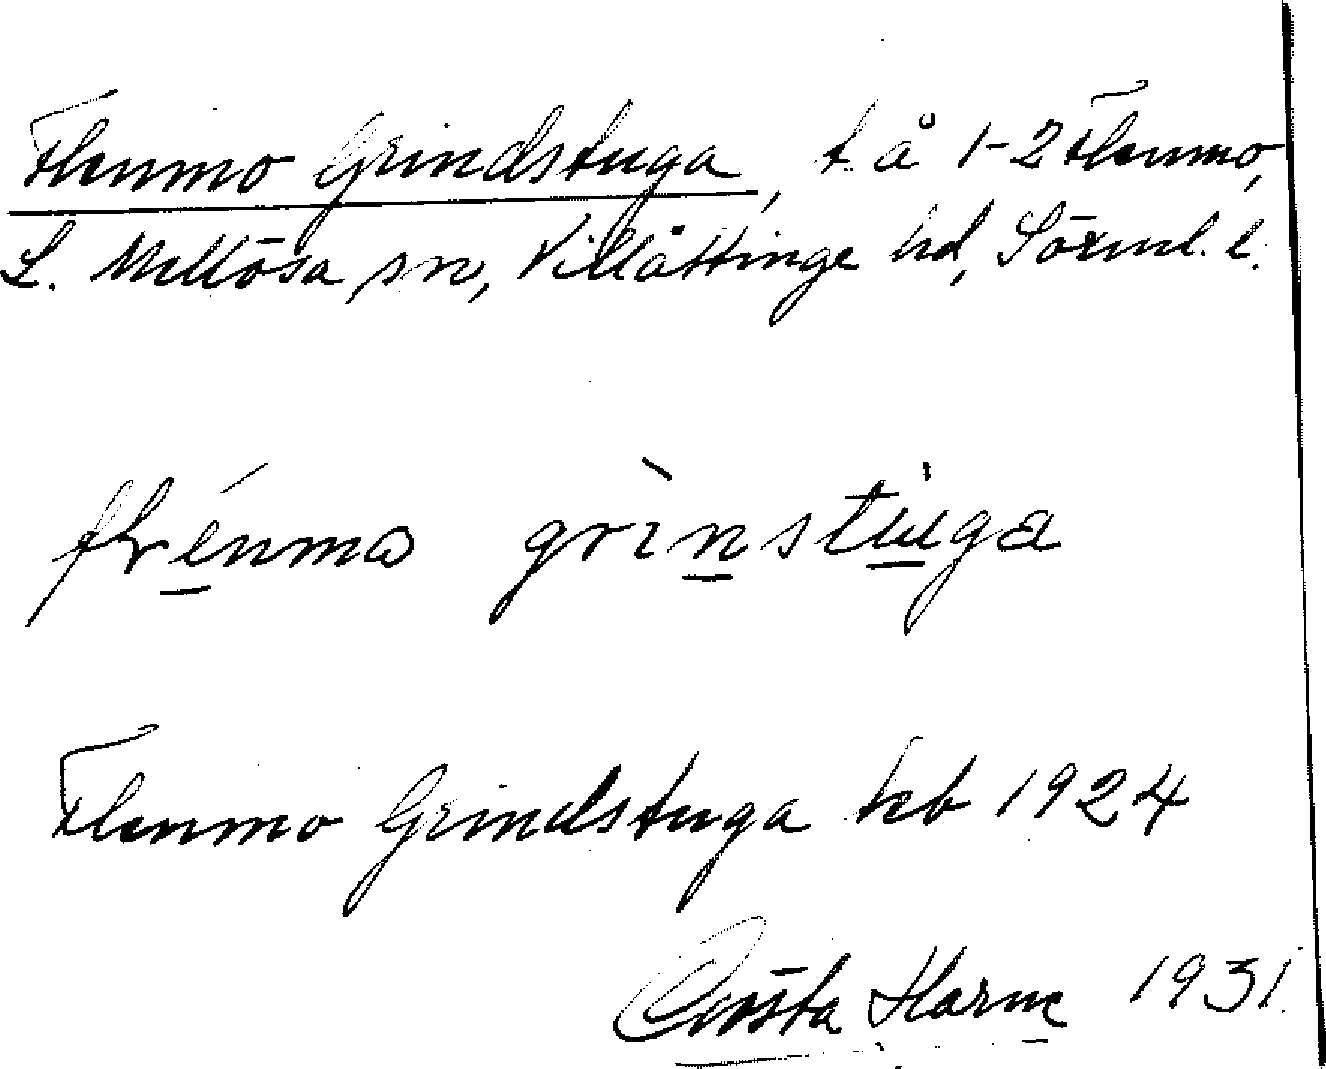 Flenmo Grindstuga, t. å 1-2 Flenmo,
L. Mellösa sn, Villåttinge hd, Sörml. l.
flénmo grìnstuga
Flenmo Grindstuga hcb 1924
Gösta Harne 1931.